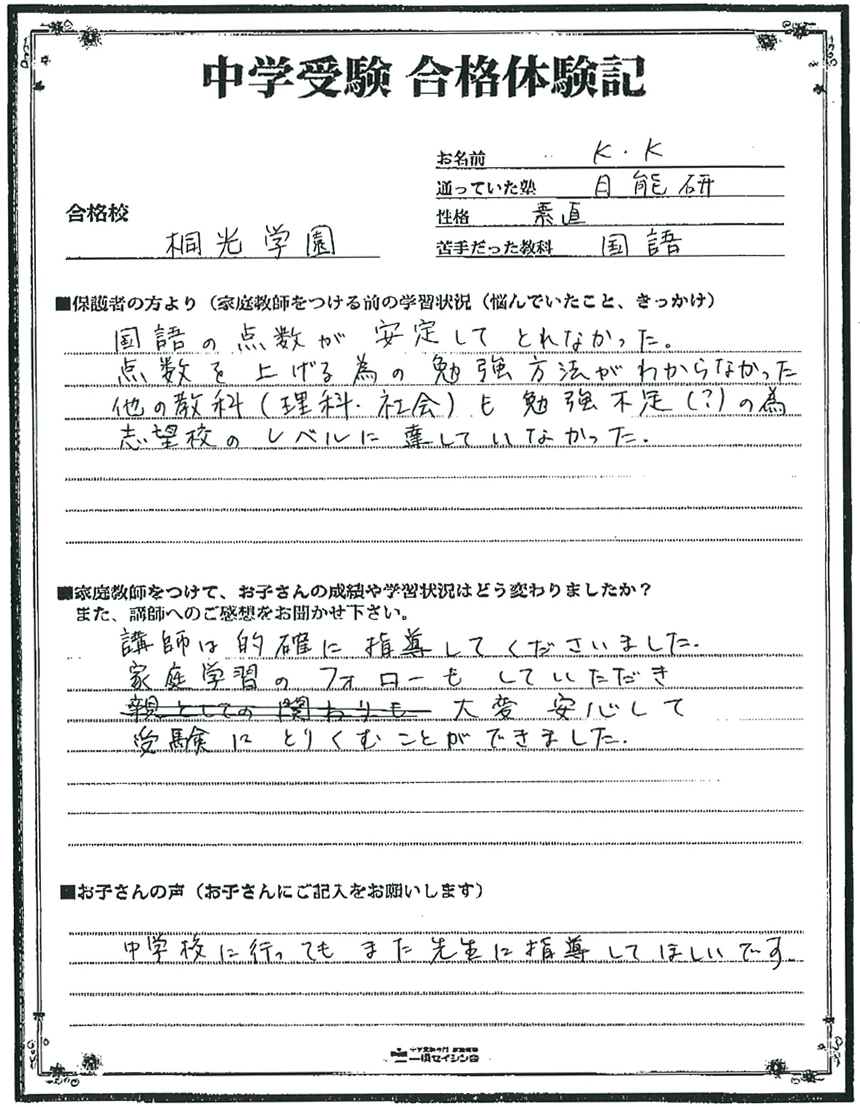 中学受験 合格体験記
お名前 K.K
通っていた塾 日能研
合格校 桐光学園
性格 素直
苦手だった教科 国語
■保護者の方より（家庭教師をつける前の学習状況（悩んでいたこと、きっかけ）
国語の点数が安定してとれなかった。
点数を上げる為の勉強方法がわからなかった
他の教科（理科・社会）も勉強不足(?)の為
志望校のレベルに達していなかった.
■家庭教師をつけて、お子さんの成績や学習状況はどう変わりましたか？
また、講師へのご感想をお聞かせ下さい。
講師は的確に指導してくださいました.
家庭学習のフォローもしていただき
親としての関わりも 大変安心して
受験にとりくむことができました.
■お子さんの声（お子さんにご記入をお願いします）
中学校に行ってもまた先生に指導してほしいです.
中学受験専門 家庭教師
一橋セイシン会